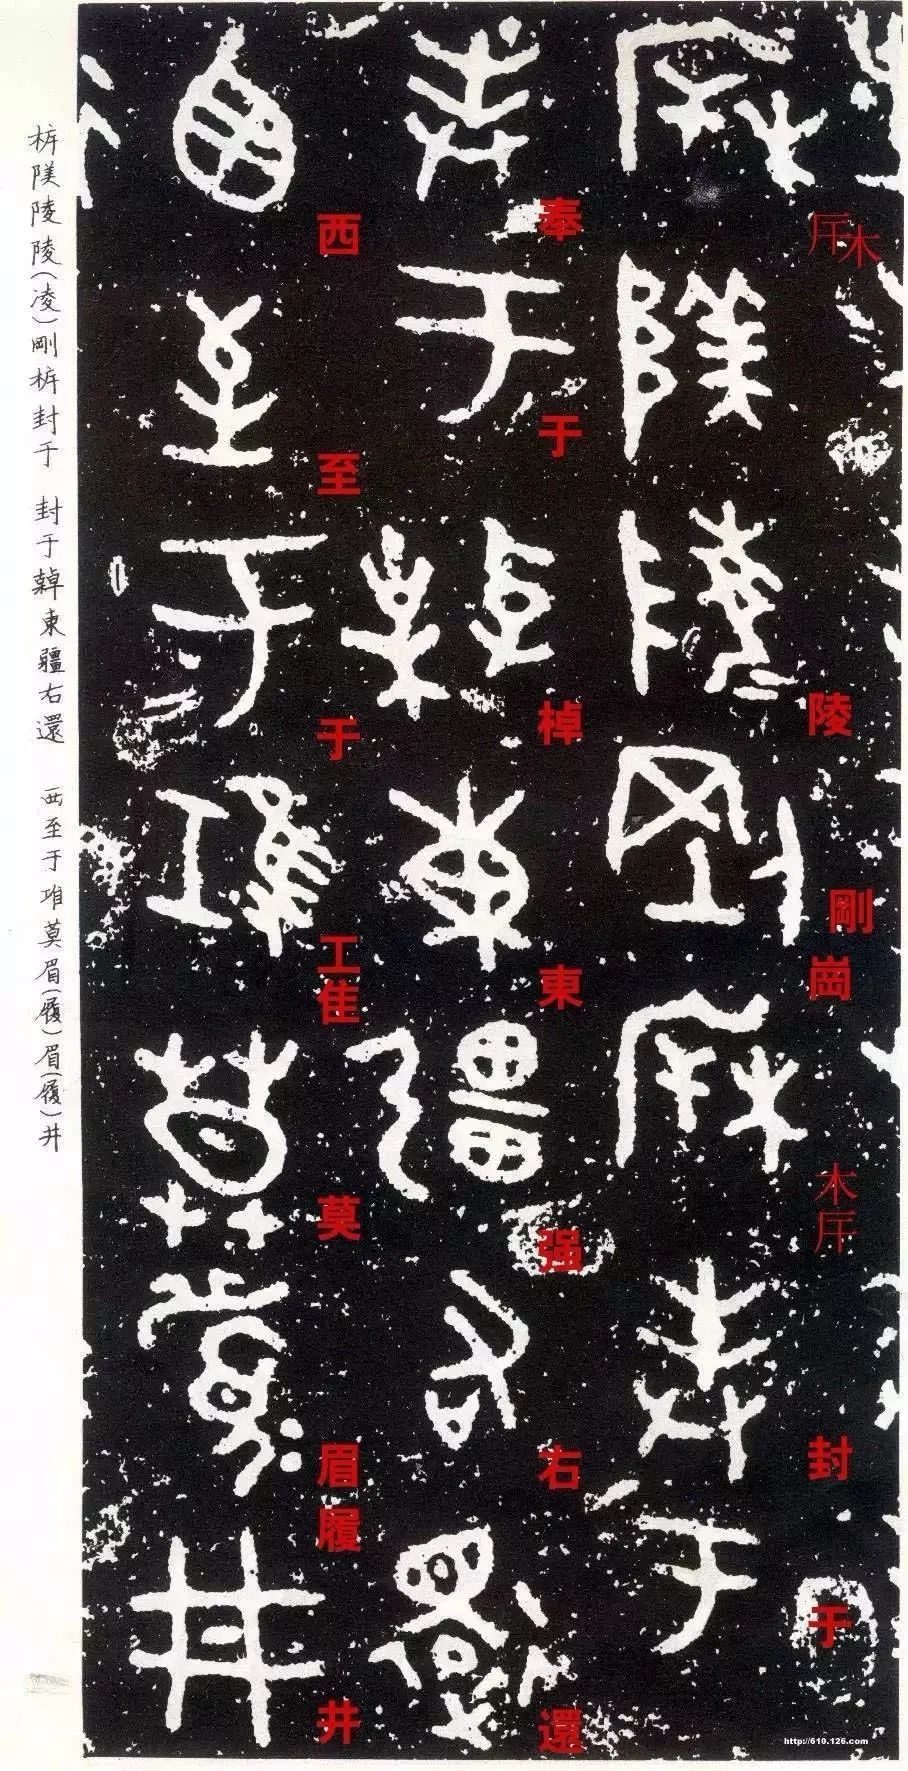 厈木 陵 剛 崗 木厈 封 于
奉 于 棹 東 强 右 還
西 至 于 工隹 莫 眉 履 井
陵陵(凌)剛 封于 封于 東疆右還 西至于 莫眉(履)眉(履)井
http://610.126.com